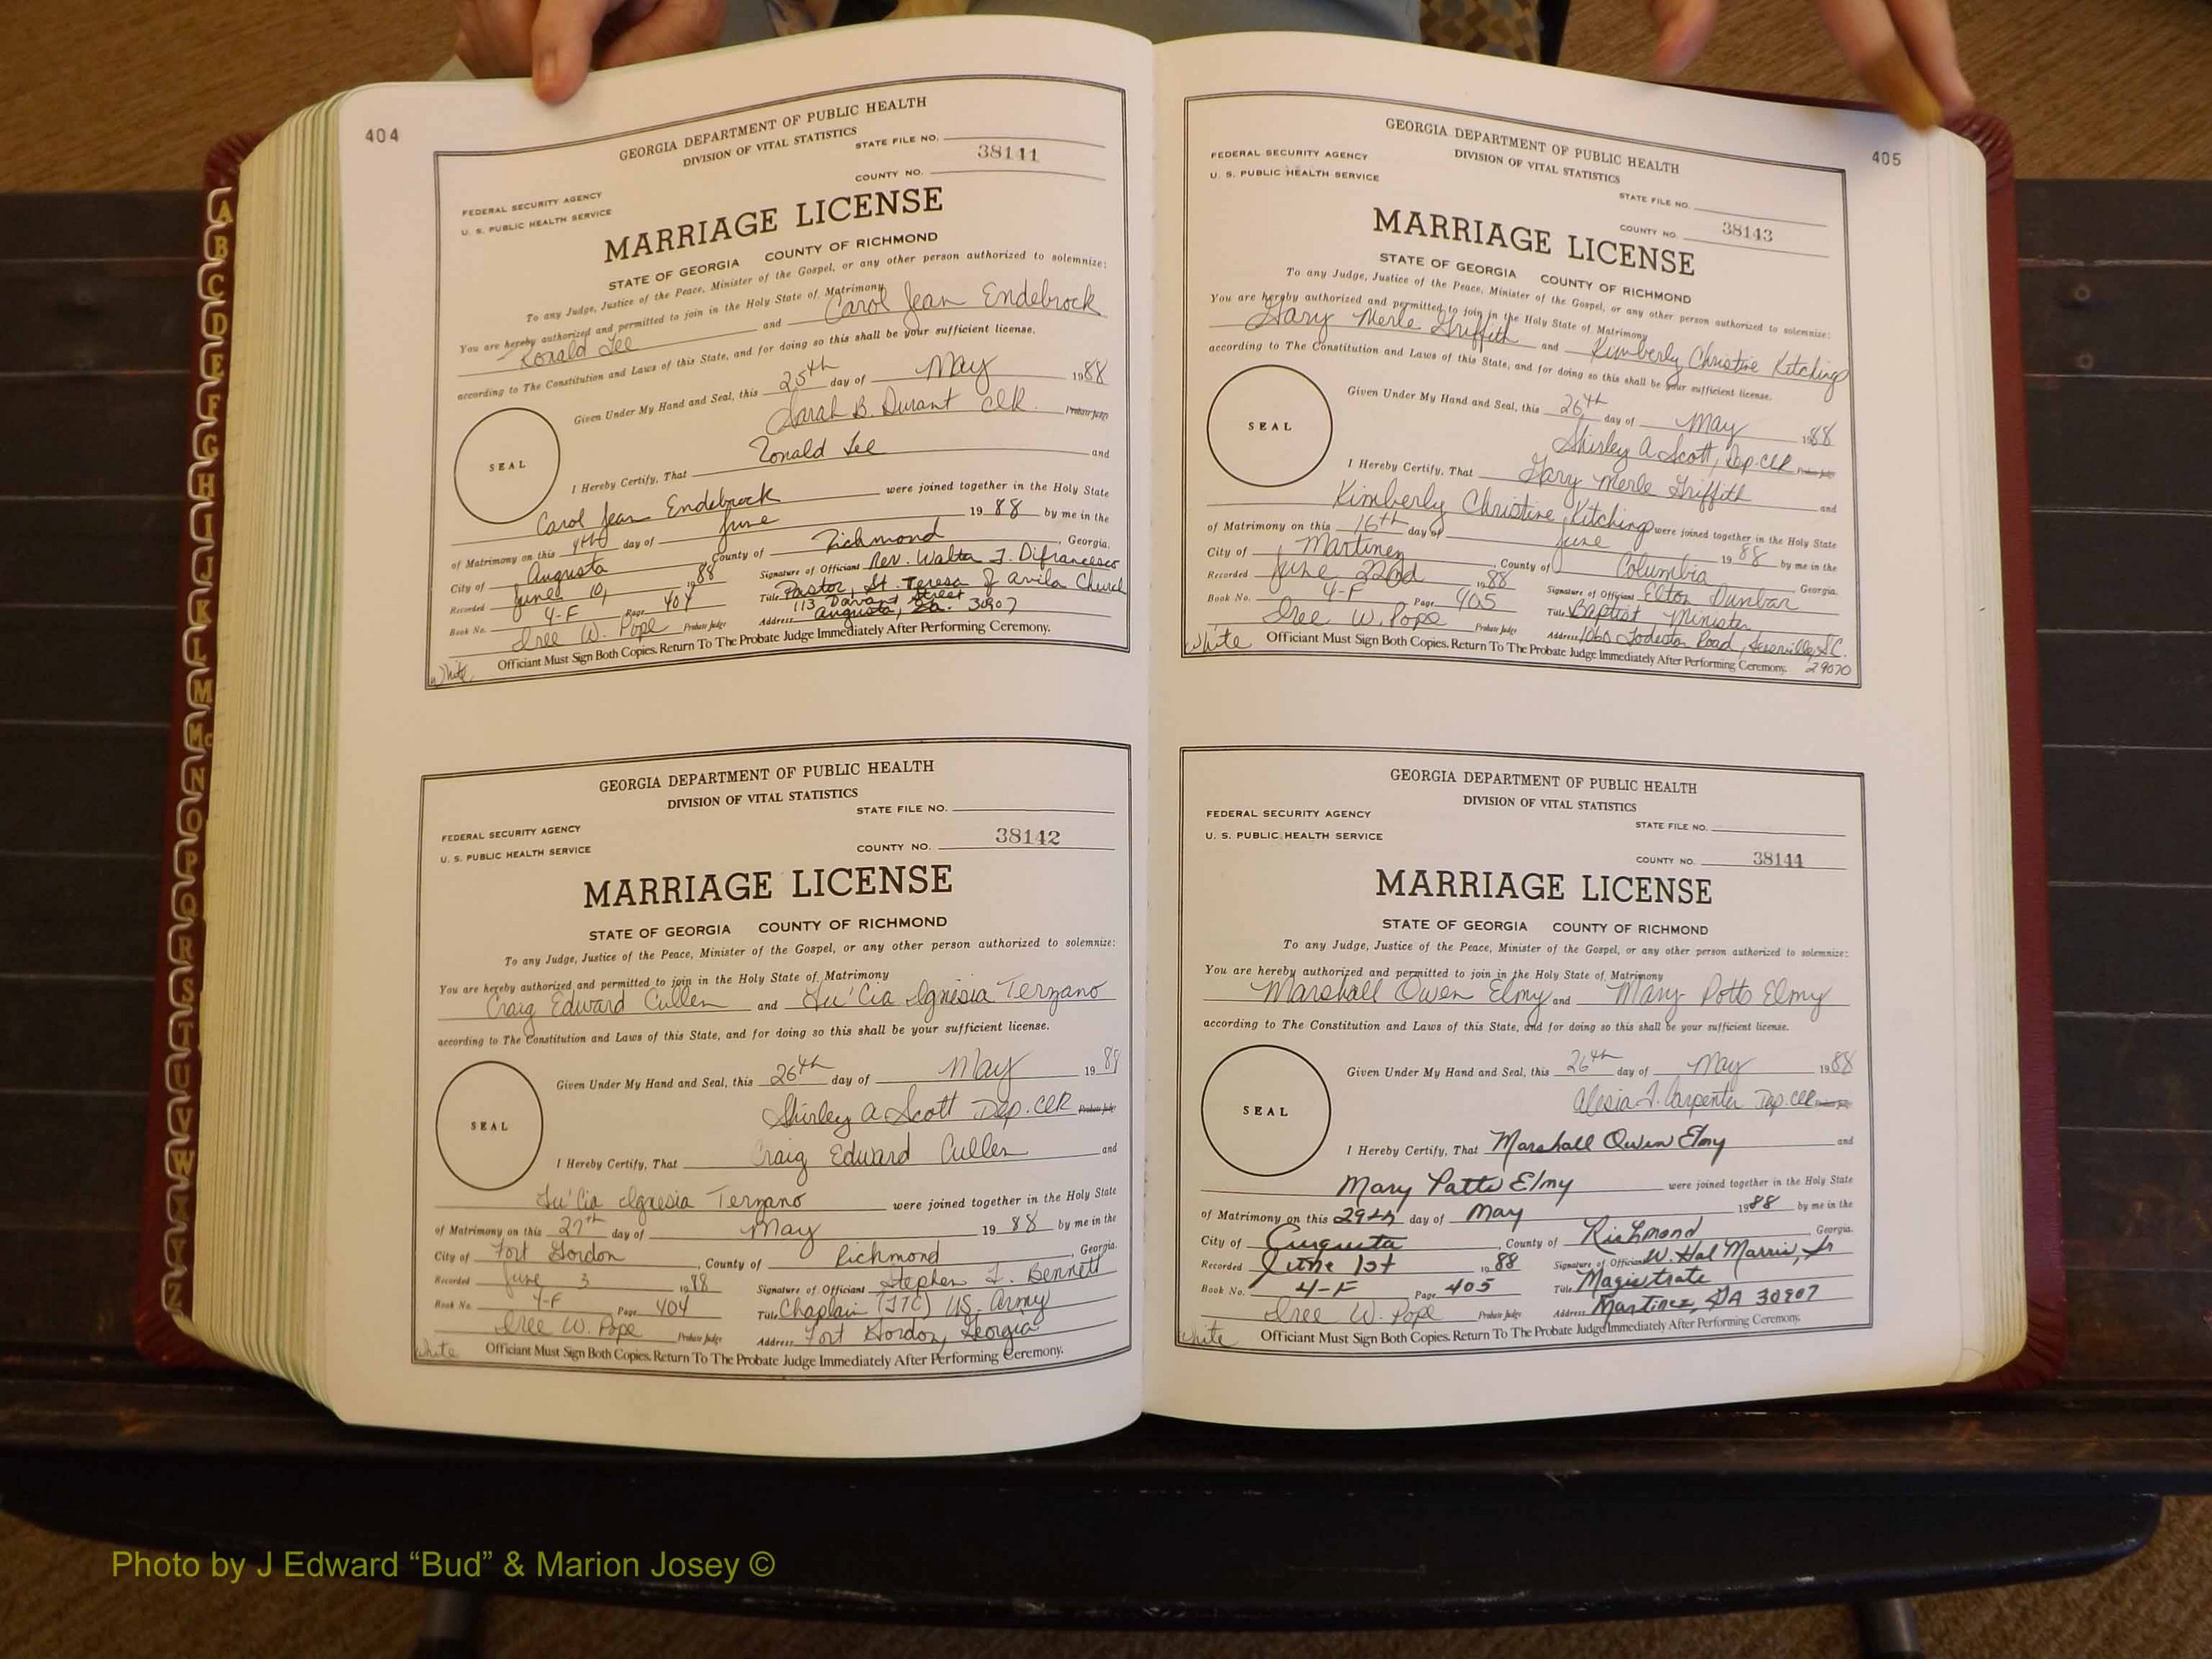 404
GEORGIA DEPARTMENT OF PUBLIC HEALTH
DIVISION OF VITAL STATISTICS
STATE FILE NO.
38141
COUNTY NO.
FEDERAL SECURITY AGENCY
U. S. PUBLIC HEALTH SERVICE
MARRIAGE LICENSE
STATE OF GEORGIA COUNTY OF RICHMOND
To any Judge, Justice of the Peace, Minister of the Gospel, or any other person authorized to solemnize:
You are hereby authorized and permitted to join in the Holy State of Matrimony
Ronald Lee and Carol Jean Endebrock
according to The Constitution and Laws of this State, and for doing so this shall be your sufficient license.
Given Under My Hand and Seal, this 25th day of May 1988
Sarah B. Durant Clk. Probate Judge
SEAL
I Hereby Certify, That Ronald Lee and
Carol Jean Endebrock were joined together in the Holy State
of Matrimony on this 4th day of June 1988 by me in the
City of Augusta County of Richmond, Georgia.
Recorded June 10, 1988 Signature of Officiant Rev. Walter J. Difrancesco
Book No. 4-F Page 404 Title Pastor, St. Teresa of Avila Church
113 Street
Iree W. Pope Probate Judge Address Augusta, Ga. 30907
White Officiant Must Sign Both Copies. Return To The Probate Judge Immediately After Performing Ceremony.
GEORGIA DEPARTMENT OF PUBLIC HEALTH
DIVISION OF VITAL STATISTICS
STATE FILE NO.
FEDERAL SECURITY AGENCY
U. S. PUBLIC HEALTH SERVICE
COUNTY NO. 38142
MARRIAGE LICENSE
STATE OF GEORGIA COUNTY OF RICHMOND
To any Judge, Justice of the Peace, Minister of the Gospel, or any other person authorized to solemnize:
You are hereby authorized and permitted to join in the Holy State of Matrimony
Craig Edward Cullen and Lu'Cia Ignesia Terzano
according to The Constitution and Laws of this State, and for doing so this shall be your sufficient license.
Given Under My Hand and Seal, this 26th day of May 1988
Shirley A Scott Dep. Clk Probate Judge
SEAL
I Hereby Certify, That Craig Edward Cullen and
Lu'Cia Ignesia Terzano were joined together in the Holy State
of Matrimony on this 27th day of May 1988 by me in the
City of Fort Gordon, County of Richmond, Georgia.
Recorded June 3 1988 Signature of Officiant Stephen Bennett
Book No. 4-F Page 404 Title Chaplain (LTC) US Army
Iree W. Pope Probate Judge Address Fort Gordon, Georgia
White Officiant Must Sign Both Copies. Return To The Probate Judge Immediately After Performing Ceremony.
405
GEORGIA DEPARTMENT OF PUBLIC HEALTH
DIVISION OF VITAL STATISTICS
FEDERAL SECURITY AGENCY
U. S. PUBLIC HEALTH SERVICE
STATE FILE NO.
COUNTY NO. 38143
MARRIAGE LICENSE
STATE OF GEORGIA COUNTY OF RICHMOND
To any Judge, Justice of the Peace, Minister of the Gospel, or any other person authorized to solemnize:
You are hereby authorized and permitted to join in the Holy State of Matrimony
Gary Merle Griffith and Kimberly Christine Kitchings
according to The Constitution and Laws of this State, and for doing so this shall be your sufficient license.
Given Under My Hand and Seal, this 26th day of May 1988
Shirley A Scott, Dep. Clk Probate Judge
SEAL
I Hereby Certify, That Gary Merle Griffith and
Kimberly Christine Kitchings were joined together in the Holy State
of Matrimony on this 16th day of June 1988 by me in the
City of Martinez, County of Columbia Georgia.
Recorded June 22nd 1988 Signature of Officiant Elton Dunbar
Book No. 4-F Page 405 Title Baptist Minister
Iree W. Pope Probate Judge Address 1060 Road, SC.
29070
White Officiant Must Sign Both Copies. Return To The Probate Judge Immediately After Performing Ceremony.
GEORGIA DEPARTMENT OF PUBLIC HEALTH
DIVISION OF VITAL STATISTICS
FEDERAL SECURITY AGENCY
U. S. PUBLIC HEALTH SERVICE
STATE FILE NO.
COUNTY NO. 38144
MARRIAGE LICENSE
STATE OF GEORGIA COUNTY OF RICHMOND
To any Judge, Justice of the Peace, Minister of the Gospel, or any other person authorized to solemnize:
You are hereby authorized and permitted to join in the Holy State of Matrimony
Marshall Owen Elmy and Mary Potts Elmy
according to The Constitution and Laws of this State, and for doing so this shall be your sufficient license.
Given Under My Hand and Seal, this 26th day of May 1988
Alesia Carpenter Dep. Clk Probate Judge
SEAL
I Hereby Certify, That Marshall Owen Elmy and
Mary Potts Elmy were joined together in the Holy State
of Matrimony on this 29th day of May 1988 by me in the
City of Augusta, County of Richmond Georgia.
Recorded June 1st 1988 Signature of Officiant W. Hal Marris, Jr
Book No. 4-F Page 405 Title Magistrate
Iree W. Pope Probate Judge Address Martinez, GA 30907
White Officiant Must Sign Both Copies. Return To The Probate Judge Immediately After Performing Ceremony.
A
B
C
D
E
F
G
H
I
J
K
L
M
Mc
N
O
P
Q
R
S
T
U
V
W
X
Y
Z
Photo by J Edward “Bud” & Marion Josey ©